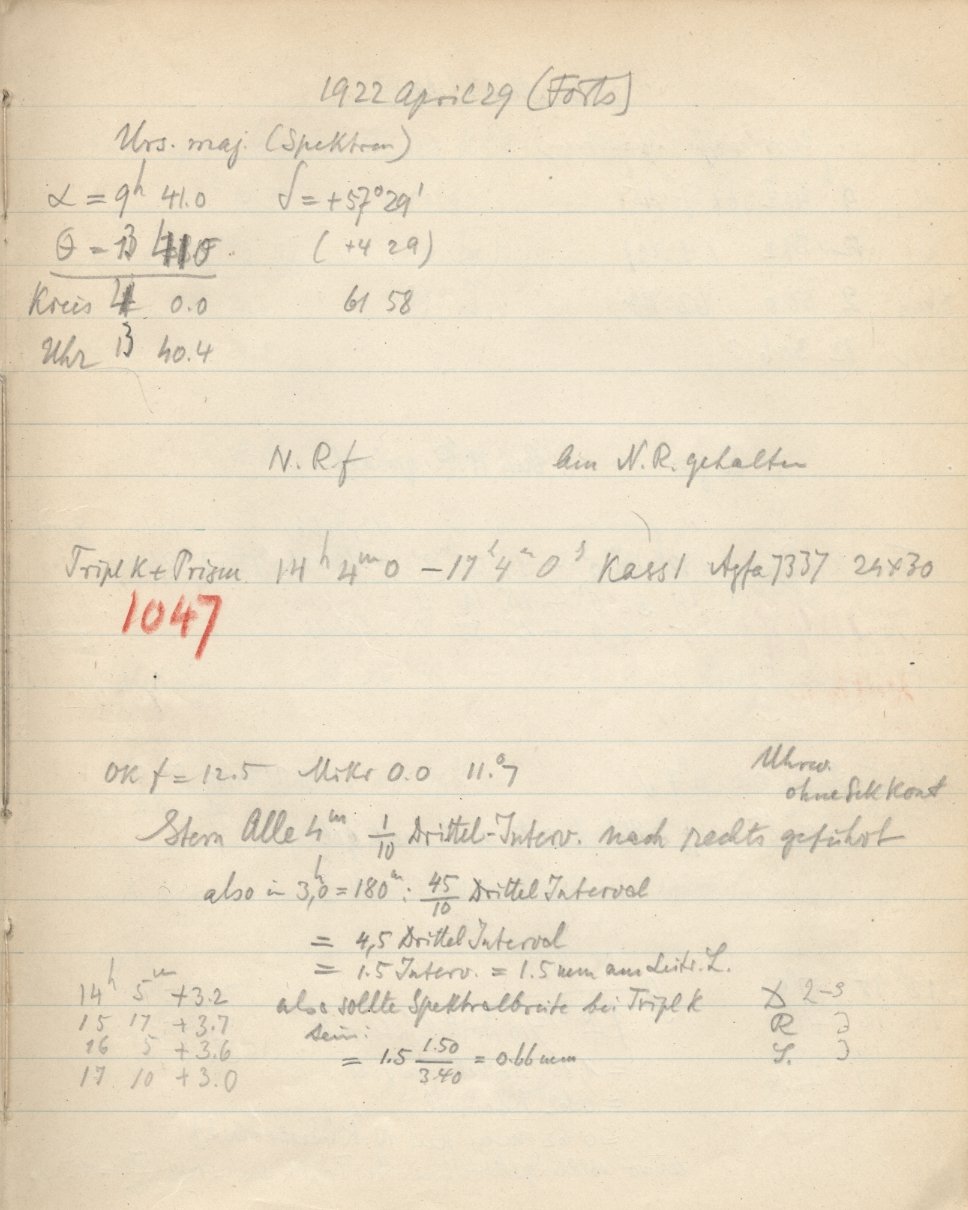 1922 April 29 (Forts)
Urs. maj. (Spektren)
α = 9h 41.0 δ = +57° 29'
θ = 13 41.0 (+4 29)
Kreis 4 0.0 61 58
Uhr 13 40.4
N. R. f am N. R. gehalten
Tripl K + Prism 14h 4m 0 – 17h 4m 0s Kass 1 Agfa 7337 24x30
1047
OK f = 12.5 Mikr 0.0 11.°7 Uhrw.
ohne Sek Kont
Stern Alle 4m 1/10 Drittel-Interv. nach rechts geführt
also in 3,h0 = 180m: 45/10 Drittel Interval
= 4,5 Drittel Interval
= 1.5 Interv. = 1.5 mm am Leitr. L.
14h 5m +3.2 also sollte Spektralbreite bei Tripl K 2-3
15 17 +3.7 sein: R 3
16 5 +3.6 = 1.5 1.50/3.40 = 0.66 mm 3
17 10 +3.0